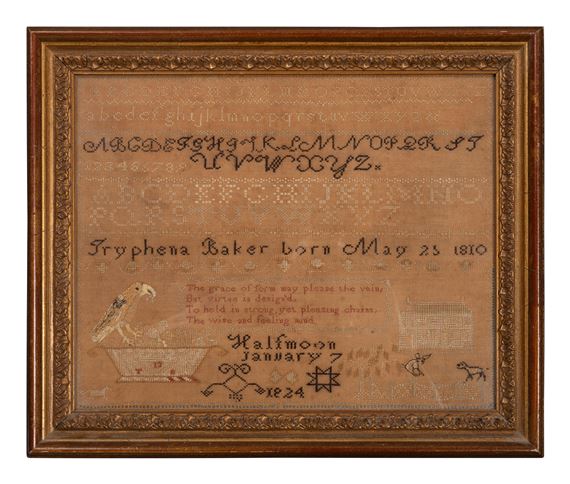 abcdefghijklmnopqrstuvwxyz
ABCDEFGHIJKLMNOPQRST
UVWXYZ
123456789
ABCDEFGHIJKLMNO
PQRSTUVW
Tryphena Baker born May 25 1810
The grace of form may please the vain,
But virtue is design'd,
To hold in strong, yet pleasing chains,
The wise and feeling mind.
Halfmoon
January 7
1824